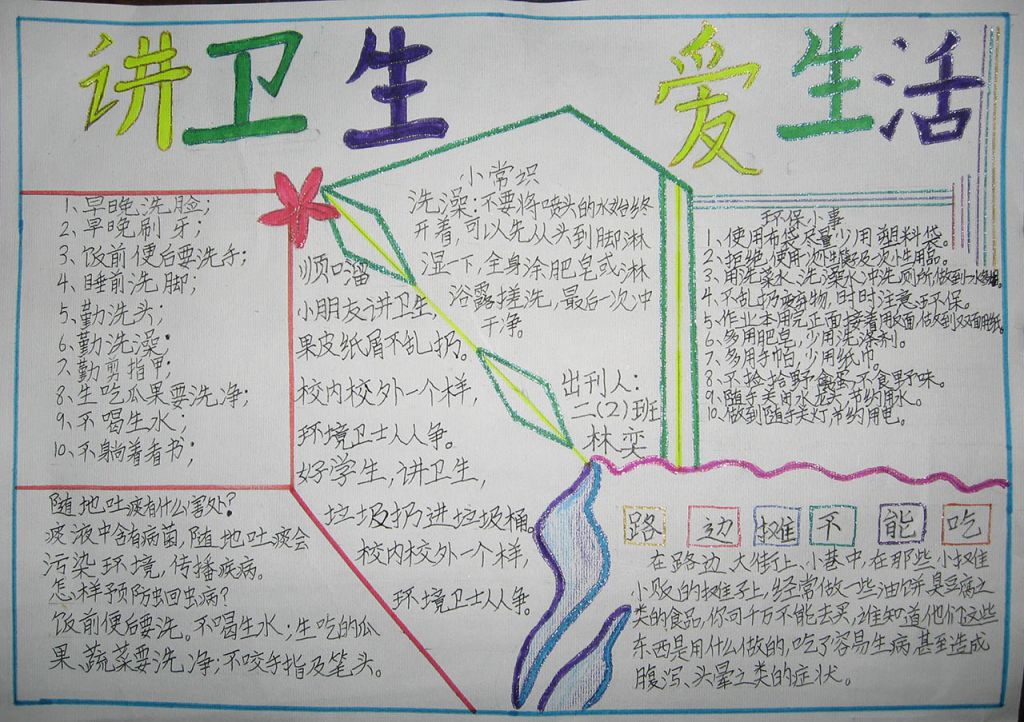 讲卫生 爱生活
1、早晚洗脸；
2、早晚刷牙；
3、饭前便后要洗手；
4、睡前洗脚；
5、勤洗头；
6、勤洗澡；
7、勤剪指甲；
8、生吃瓜果要洗净；
9、不喝生水；
10、不躺着看书；
随地吐痰有什么害处？
痰液中含有病菌，随地吐痰会
污染环境，传播疾病。
怎样预防蛔虫病？
饭前便后要洗。不喝生水；生吃的瓜
果、蔬菜要洗净；不咬手指及笔头。
顺口溜
小朋友讲卫生，
果皮纸屑不乱扔。
校内校外一个样，
环境卫士人人争。
好学生，讲卫生，
垃圾扔进垃圾桶。
校内校外一个样，
环境卫士人人争。
小常识
洗澡：不要将喷头的水始终
开着，可以先从头到脚淋
湿一下，全身涂肥皂或淋
浴露搓洗，最后一次冲
干净。
出刊人：
二(2)班
林奕
环保小事
1、使用布袋，尽量少用塑料袋。
2、拒绝使用次性餐及次性用品。
3、用洗菜水、洗澡水冲洗厕所，做到一水多用。
4、不乱扔弃物，时时注意环保。
5、作业本用完正面接着用反面，做到双面用纸。
6、多用肥皂，少用洗涤剂。
7、多用手帕，少用纸巾。
8、不捡拾野禽蛋，不食野味。
9、随手关闭水龙头，节约用水。
10、做到随手关灯，节约用电。
路边摊不能吃
在路边、大街上、小巷中，在那些小摊
小贩的摊子上，经常做一些油饼、臭豆腐之
类的食品，你可千万不能去买，谁知道他们这些
东西是用什么做的，吃了容易生病，甚至造成
腹泻、头晕之类的症状。